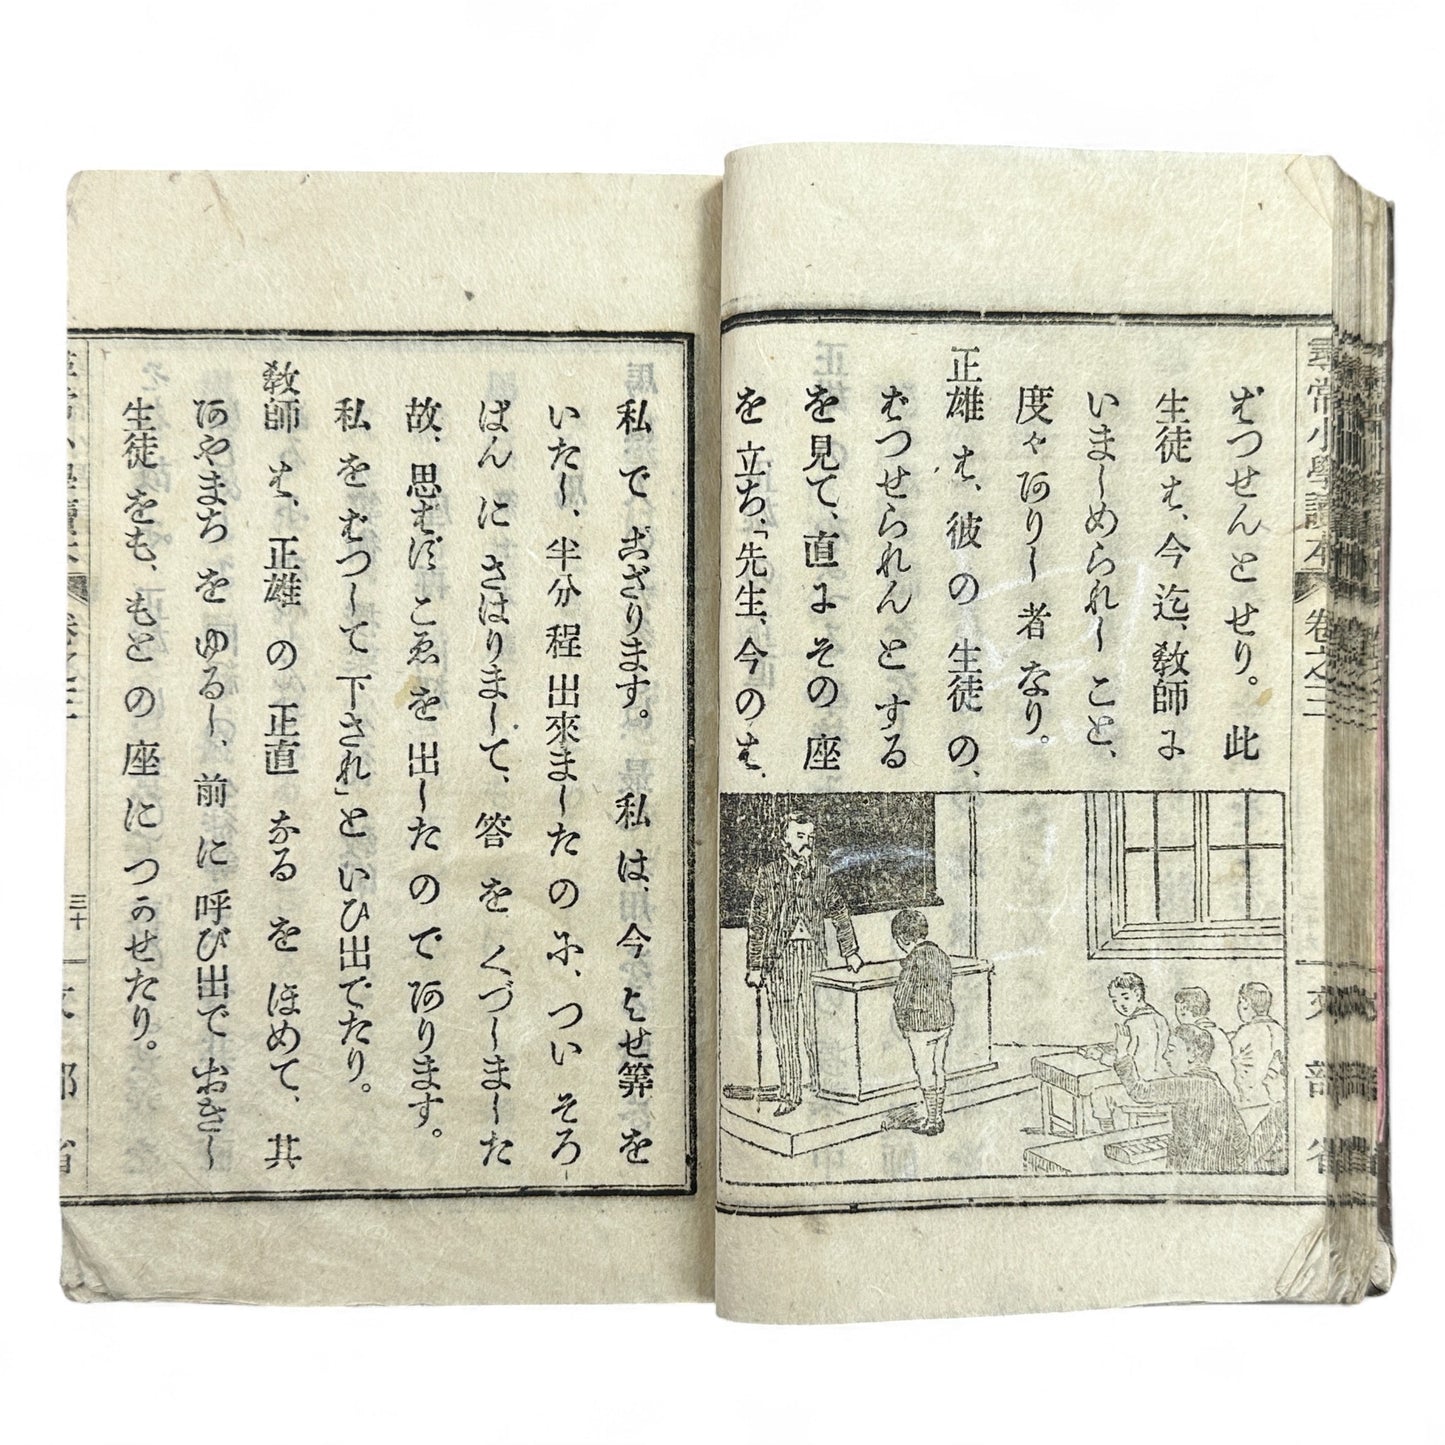 尋常小學讀本 卷之三 文部省
むつせんとせり。此
生徒は、今迄、敎師に
いましめられしこと、
度々ありし者なり。
正雄は、彼の生徒の、
むつせられんとする
を見て、直にその座
を立ち、「先生、今のは、
私でござります。私は、今よせ筭を
いたし、半分程出來ましたのに、ついそろ
ばんにさはりまして、答をくづしました
故、思はずこゑを出したのであります。
私をむつして下され」といひ出でたり。
敎師は、正雄の正直なるをほめて、其
あやまちをゆるし、前に呼び出でおきし
生徒をも、もとの座につかせたり。
三十